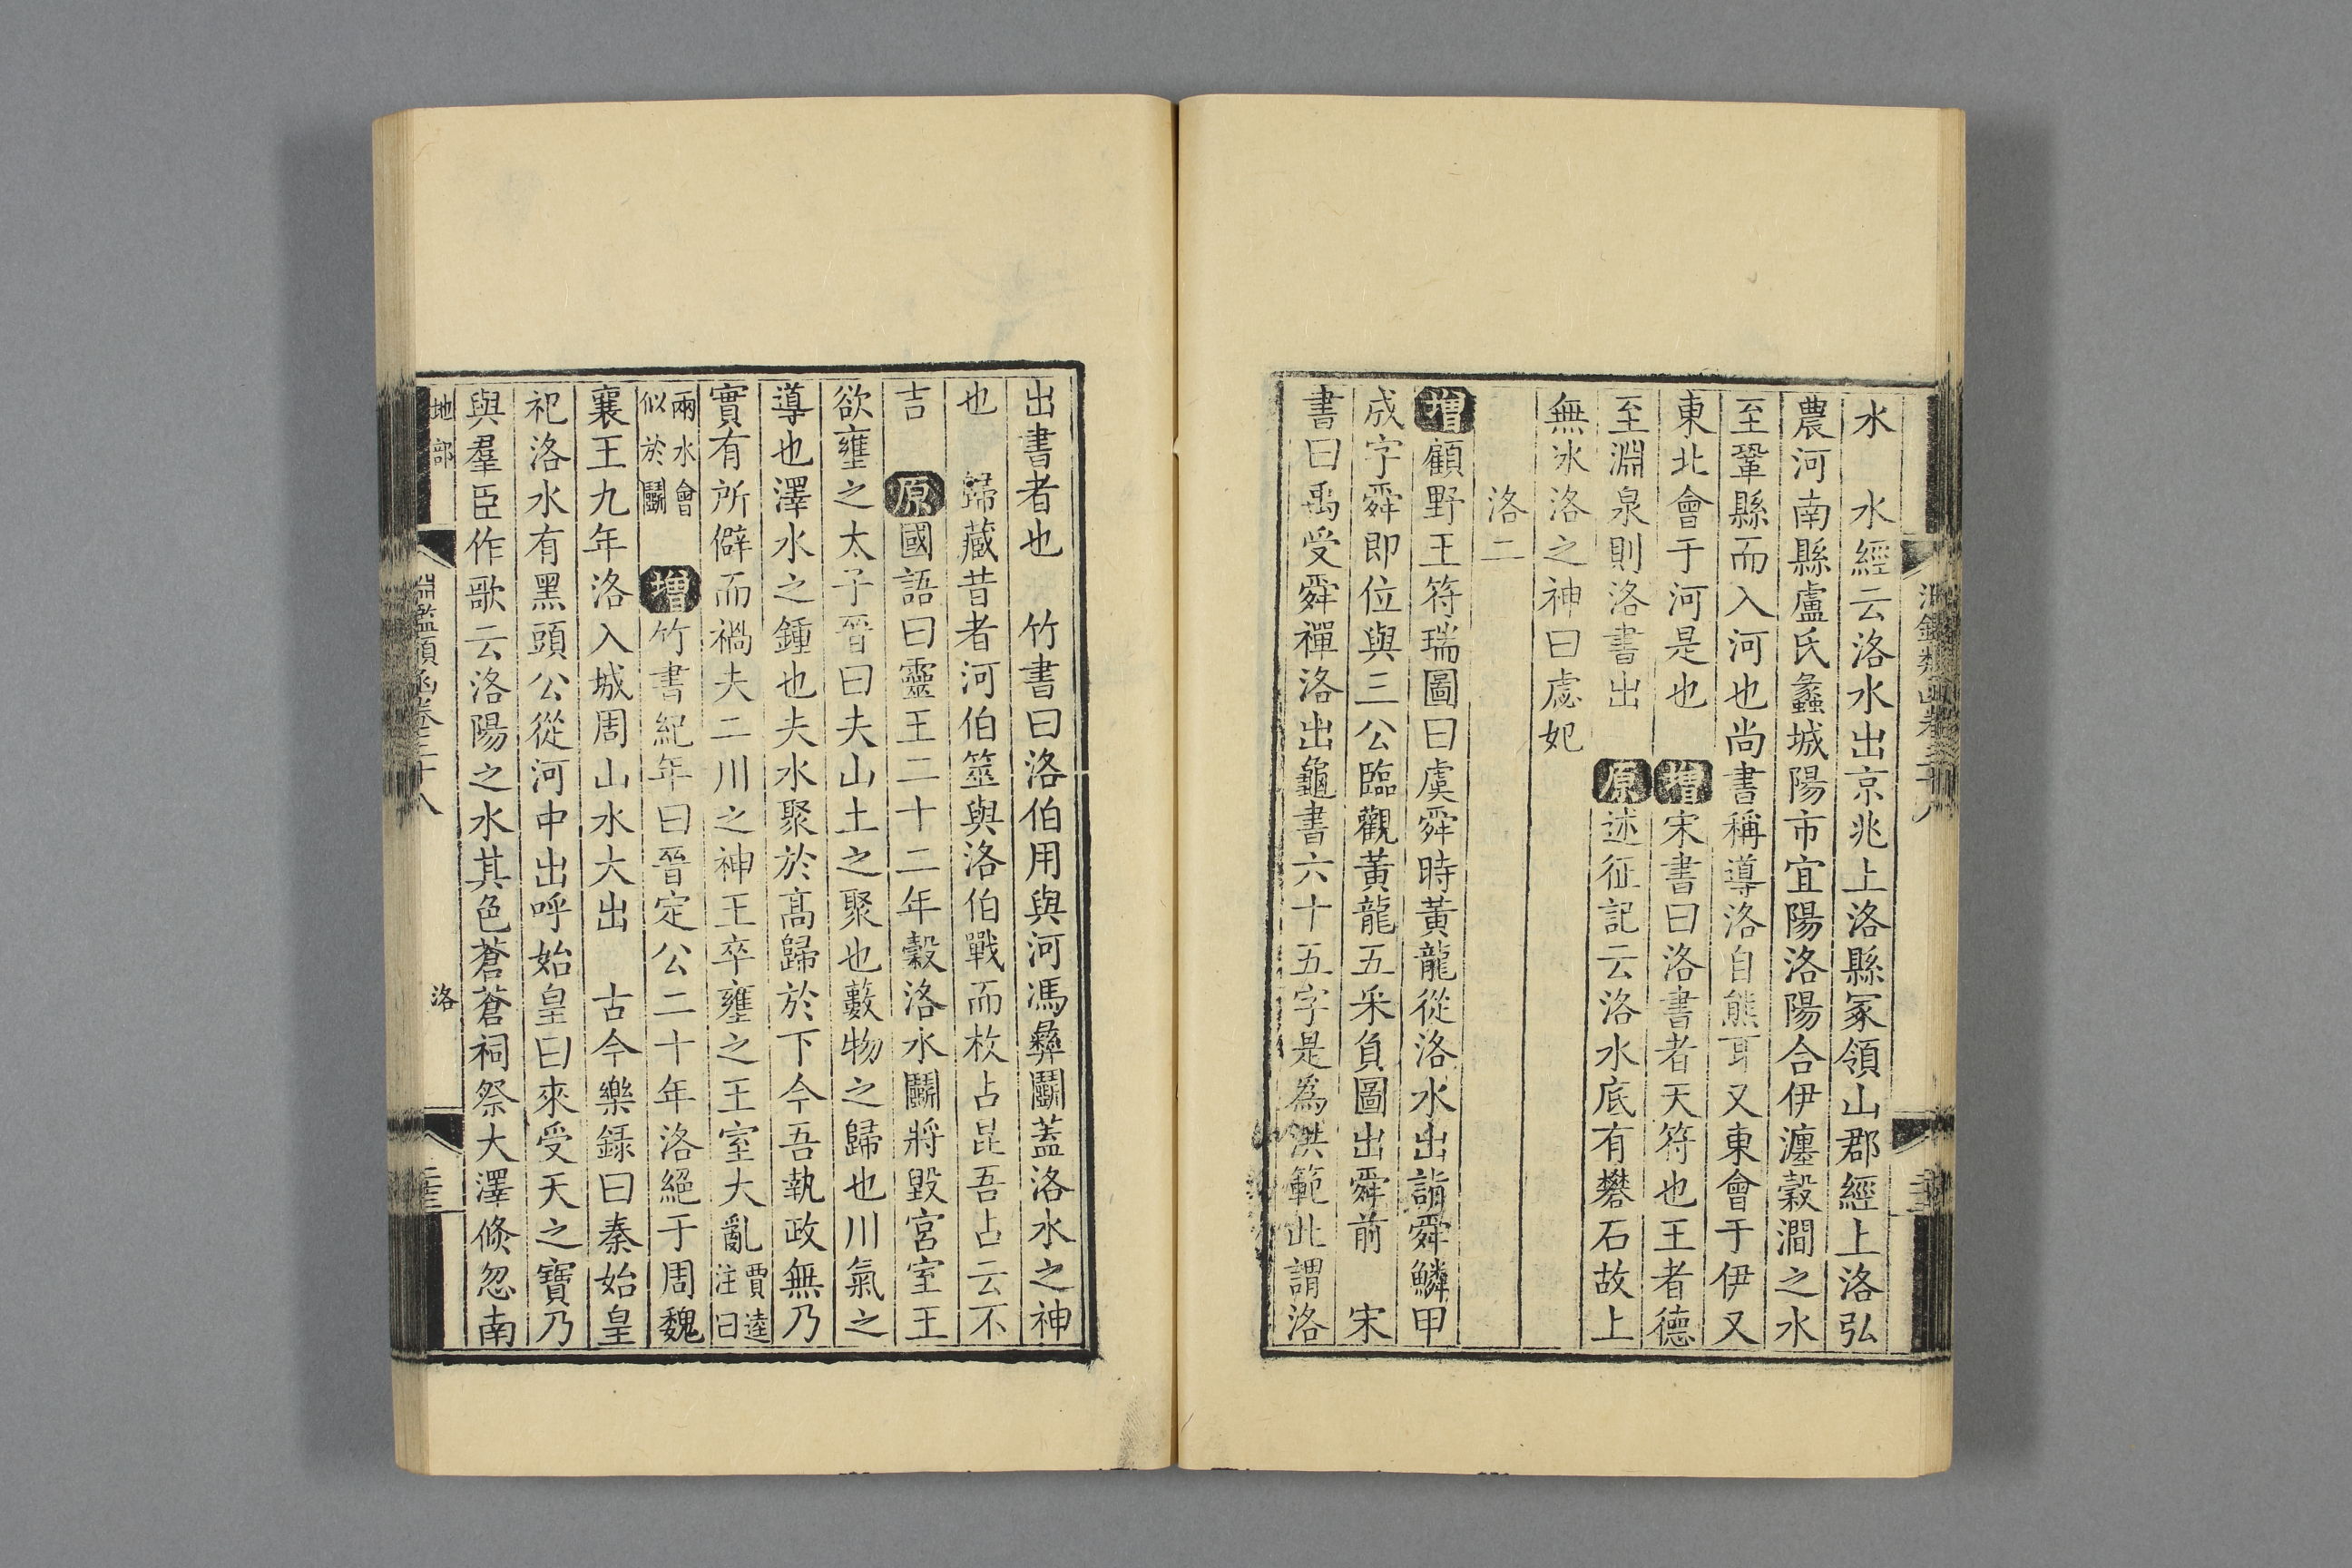 水　水經云洛水出京兆上洛縣冢領山郡經上洛弘
農河南縣盧氏蠡城陽市宜陽洛陽合伊瀍穀澗之水
至鞏縣而入河也尚書稱導洛自熊耳又東會于伊又
東北會于河是也　增宋書曰洛書者天符也王者德
至淵泉則洛書出　原述征記云洛水底有礬石故上
無冰洛之神曰虙妃
洛二
增顧野王符瑞圖曰虞舜時黃龍從洛水出詣舜鱗甲
成字舜即位與三公臨觀黃龍五采負圖出舜前　宋
書曰禹受舜禪洛出龜書六十五字是爲洪範此謂洛
出書者也　竹書曰洛伯用與河馮彝鬭蓋洛水之神
也　歸藏昔者河伯筮與洛伯戰而枚占昆吾占云不
吉　原國語曰靈王二十二年穀洛水鬭將毀宮室王
欲壅之太子晉曰夫山土之聚也藪物之歸也川氣之
導也澤水之鍾也夫水聚於高歸於下今吾執政無乃
實有所僻而禍夫二川之神王卒壅之王室大亂賈逵注曰
兩水會似於鬭　增竹書紀年曰晉定公二十年洛絕于周魏
襄王九年洛入城周山水大出　古今樂録曰秦始皇
祀洛水有黑頭公從河中出呼始皇曰來受天之寶乃
與羣臣作歌云洛陽之水其色蒼蒼祠祭大澤倐忽南
地部　淵鑑類函卷三十八　洛